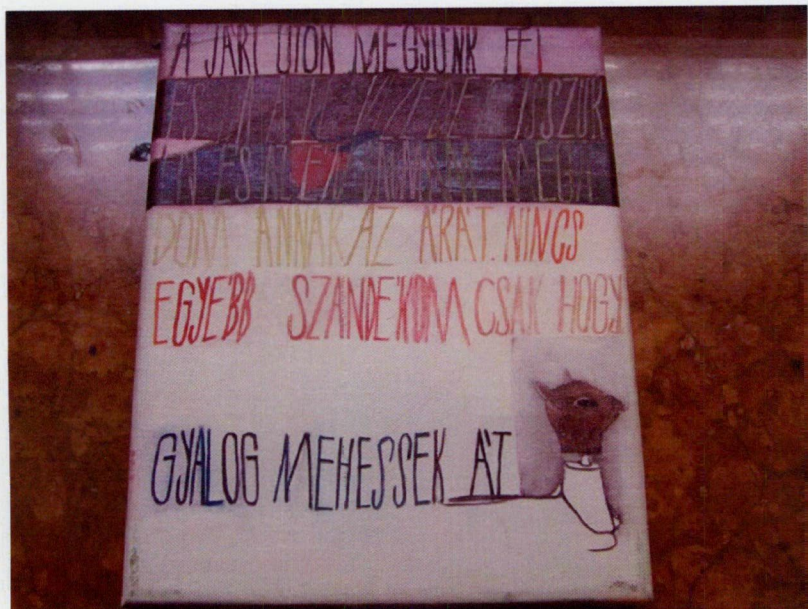 A JÁRT ÚTON MEGYÜNK FEL
ÉS HA A TE VIZEDET ISSZUK
ÉN ÉS AZ ÉN BARMAIM MEGA
DOM ANNAK AZ ÁRÁT. NINCS
EGYÉBB SZÁNDÉKOM CSAK HOGY
GYALOG MEHESSEK ÁT